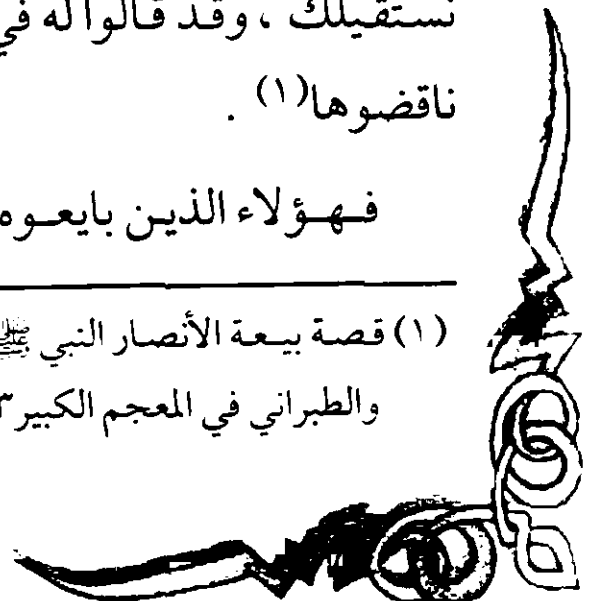 نستقيلك ، وقد قالوا له في
ناقضوها(١) .
فـهـؤلاء الذيـن بايعـوه
(١) قـصـة بيـعـة الأنصـار النبي ﷺ
والطبراني في المعجم الكبير٣